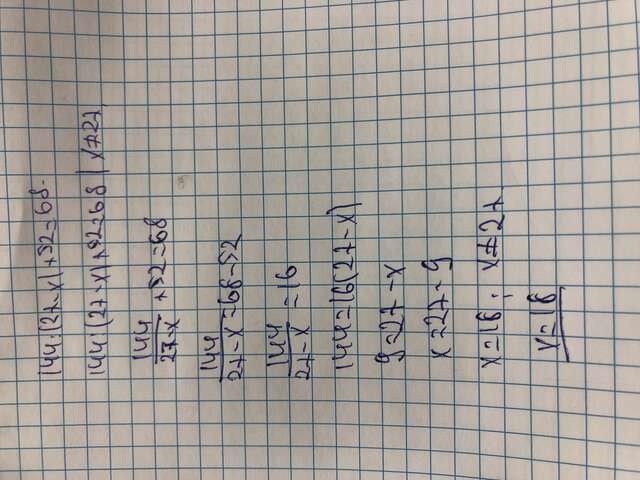 144:(27-x)+52=68
144:(27-x)+52=68 | x≠27
144/27-x +52=68
144/27-x =68-52
144/27-x =16
144=16(27-x)
9=27-x
x=27-9
x=18; x≠27
x=18